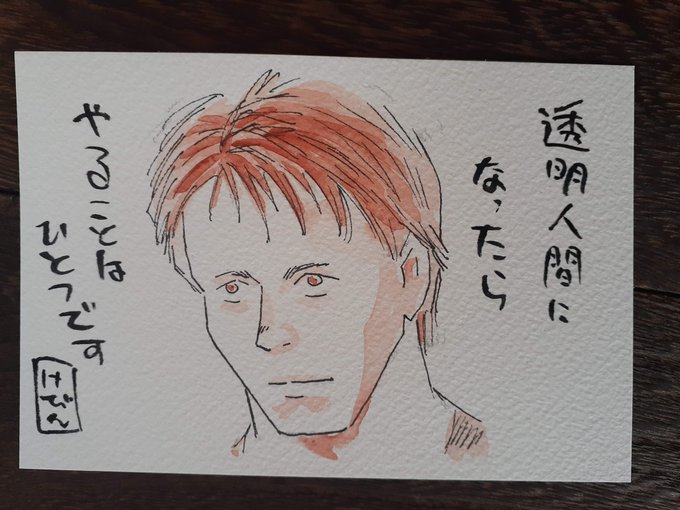 透明人間に
なったら
やることは
ひとつです
けびん